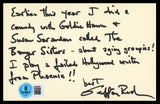 Earlier this year I did a
cameo with Goldie Hawn &
Susan Sarandon called The
Banger Sisters - about aging groupies!
I play a failed Hollywood writer
from Phoenix!!
best